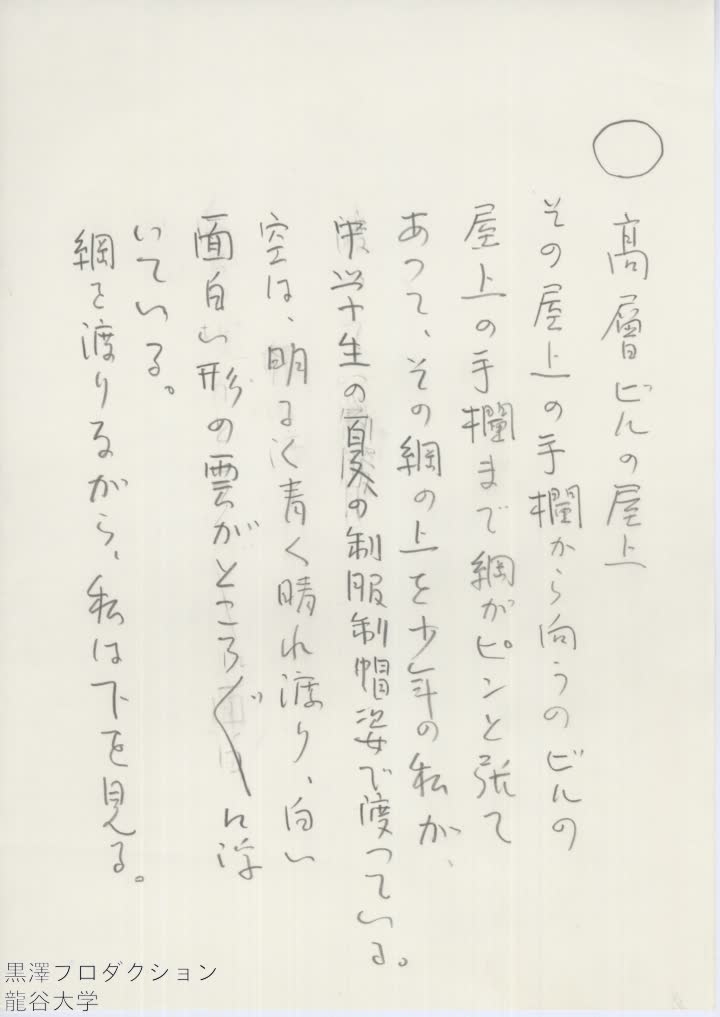 ○
高層ビルの屋上
その屋上の手欄から向うのビルの
屋上の手欄まで綱がピンと張て
あって、その綱の上を少年の私が、
学生の夏の制服制帽姿で渡っている。
空は、明るく青く晴れ渡り、白い
面白い形の雲がところ〲に浮
いている。
綱を渡りながら、私は下を見る。
黒澤プロダクション
龍谷大学